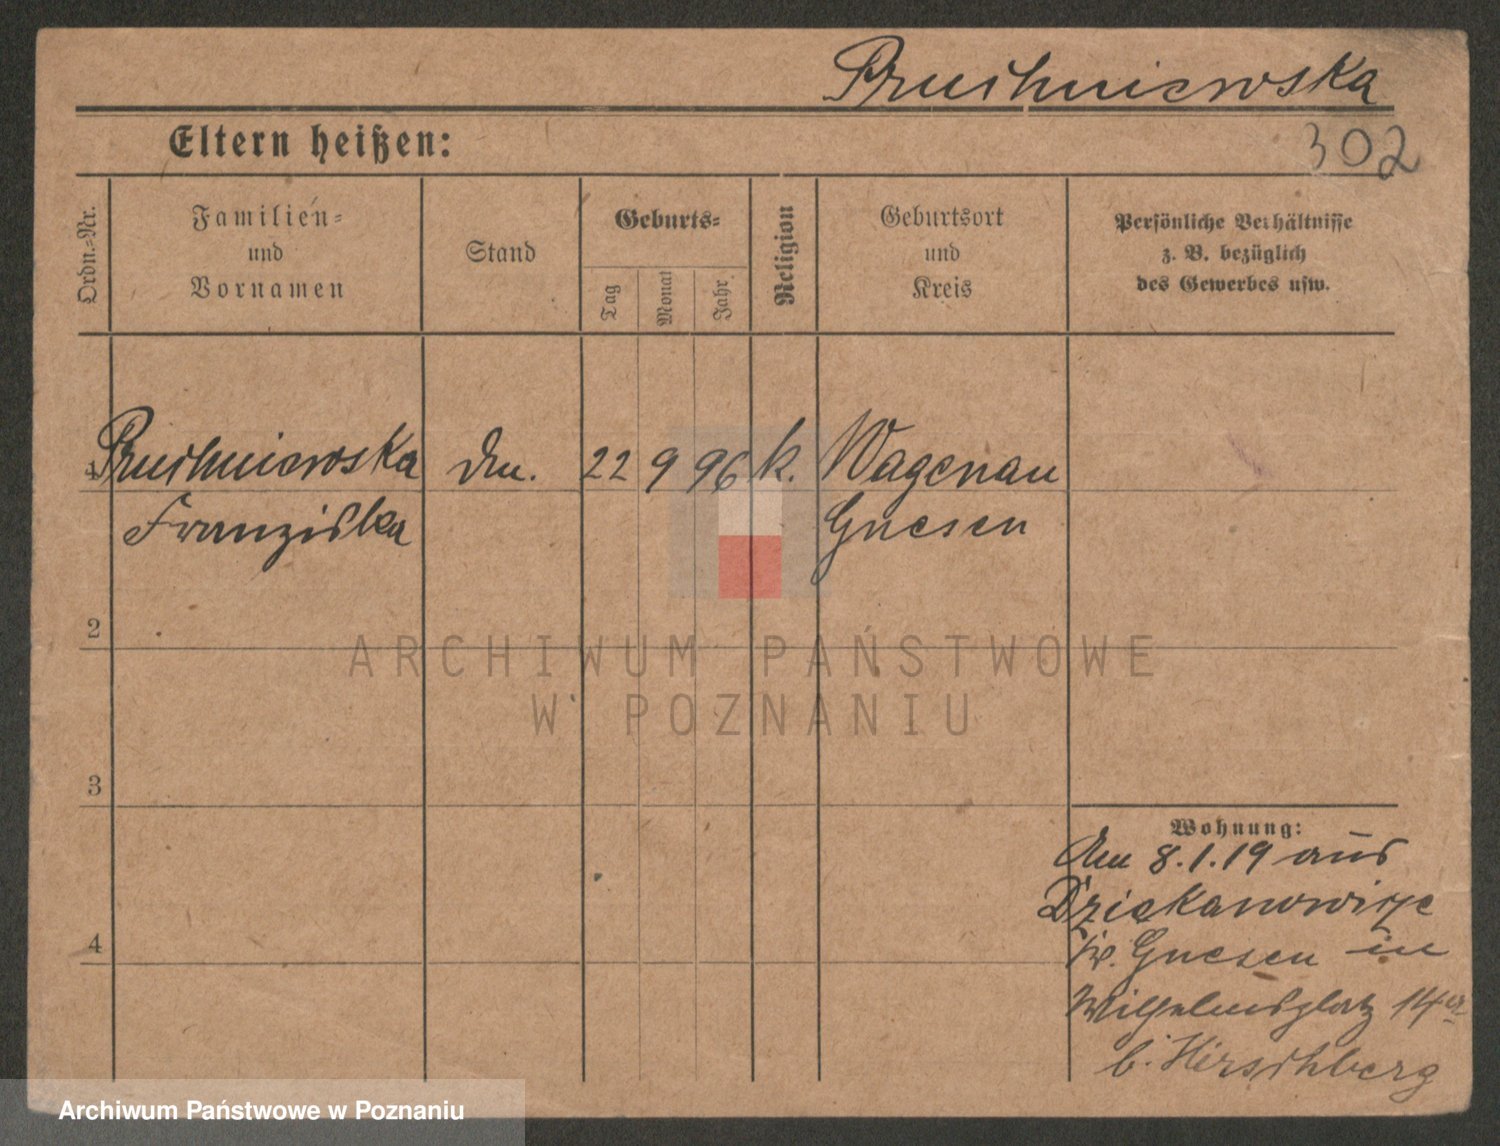 Pruchniewska
Eltern heißen:
302
Ordn.-Nr.
Familien-
und
Vornamen
Stand
Geburts-
Tag
Monat
Jahr
Religion
Geburtsort
und
Kreis
Persönliche Verhältnisse
z. B. bezüglich
des Gewerbes usw.
1 Pruchniewska 22 9 96 k. Wagenau
Franziska Gnesen
2
3
4
Wohnung:
Am 8.1.19 aus
Dziekanowitze
Kr. Gnesen in
Wilhelmsplatz 14a
b. Hirschberg
ARCHIWUM PAŃSTWOWE
W POZNANIU
Archiwum Państwowe w Poznaniu